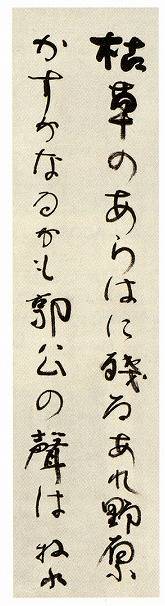 枯草のあらはに殘るあれ野原
かすかなるかも郭公の聲は 牧水